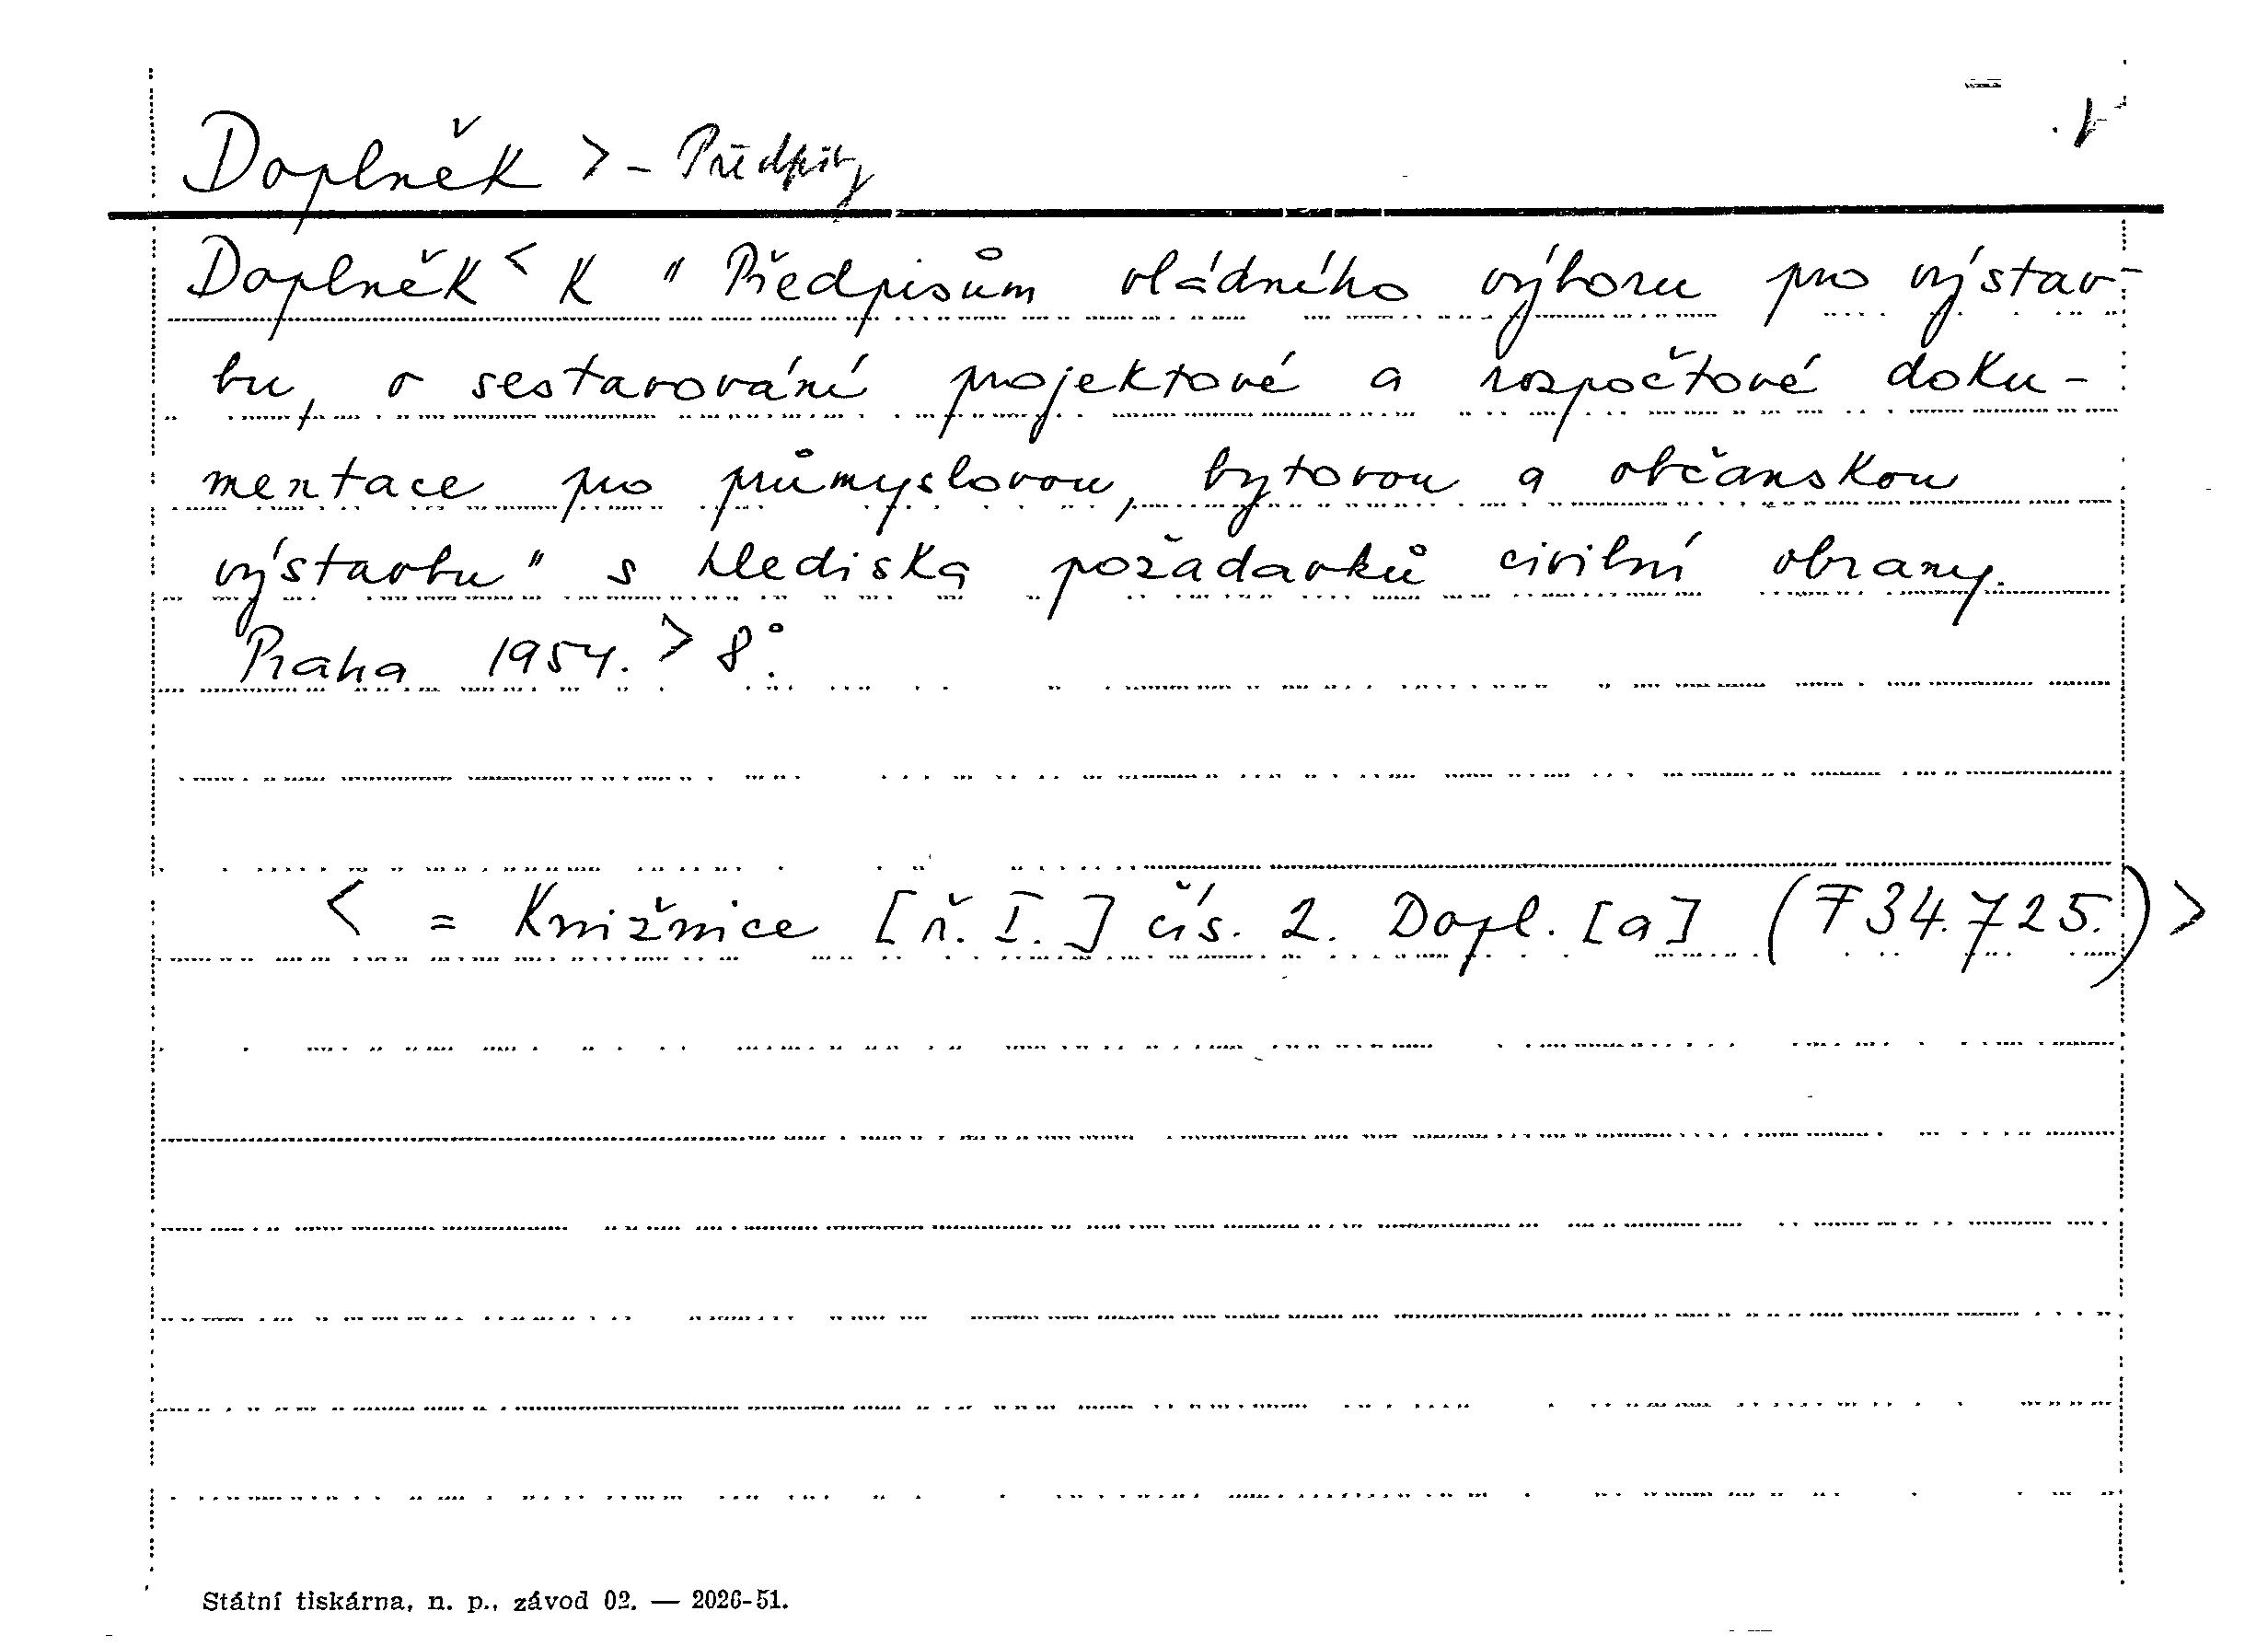 Doplněk > - Předpisy
Doplněk < k " Předpisům vládního výboru pro výstav-
bu, o sestavování projektové a rozpočtové doku-
mentace pro průmyslovou, bytovou a občanskou
výstavbu" s hlediska požadavků civilní obrany.
Praha 1954. > 8°.
< = Knižnice [ř. I.] čís. 2. Dopl. [a] (F 34.725.) >
Státní tiskárna, n. p., závod 02. — 2026-51.